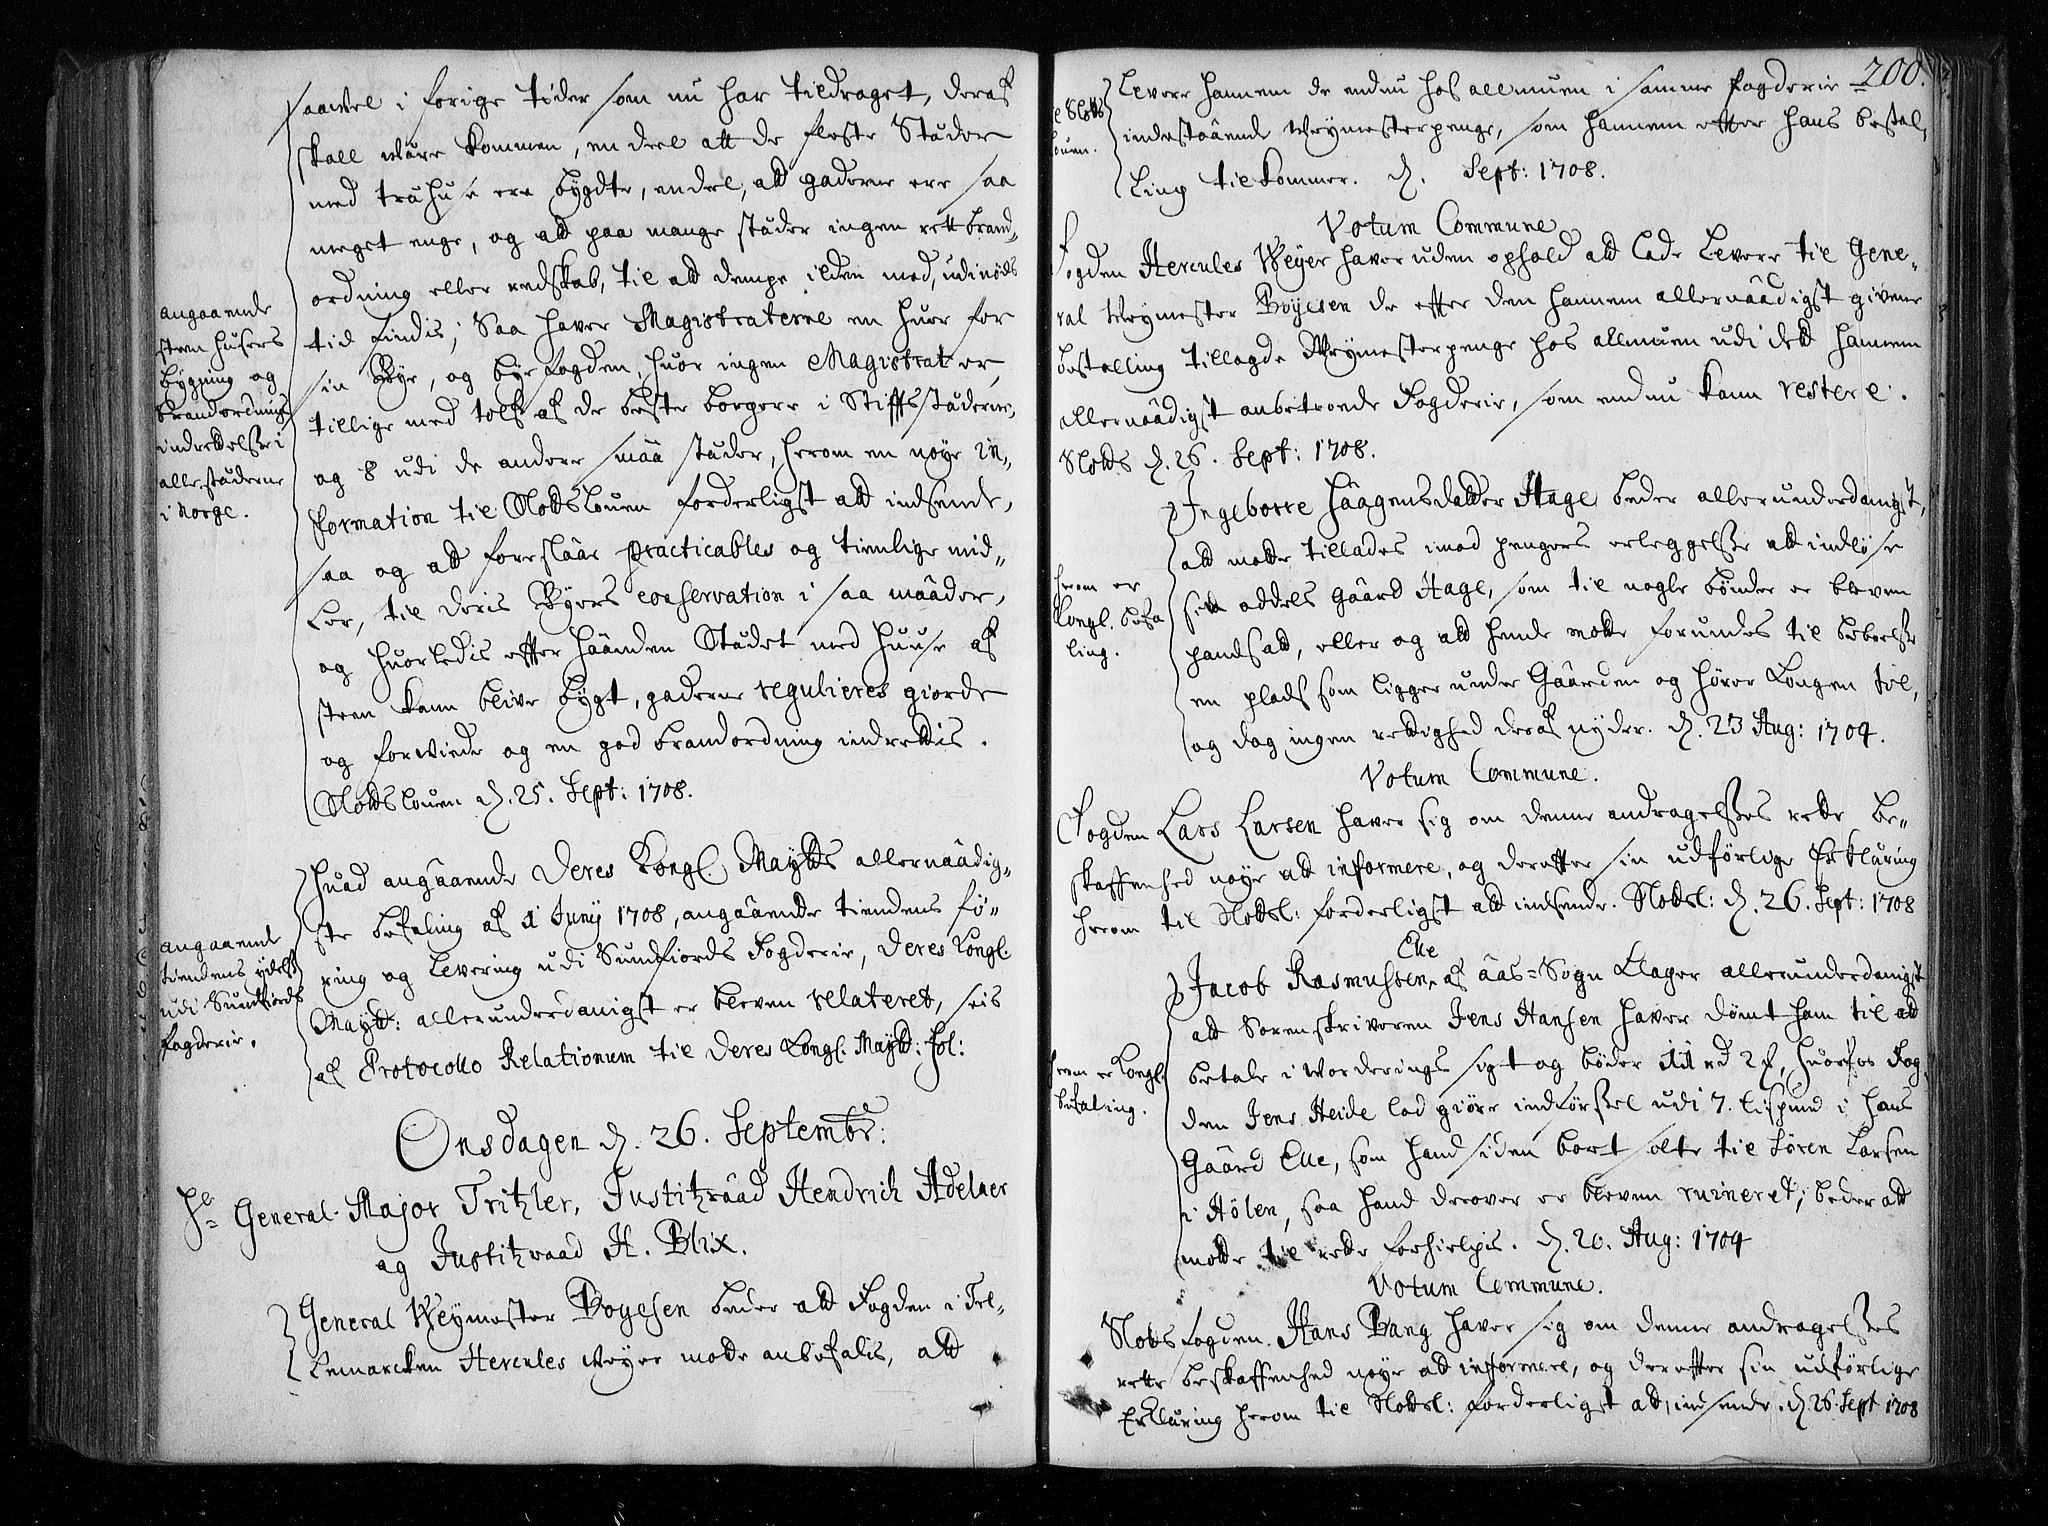 saavel i forige tider som nu har tildraget, deraf
skall være kommen, en deel att de fleste Stæder
med træhuse ere bÿgdte, endel, att gaderne ere saa
meget enge, og att paa mange stæder ingen rett brand-
ordning eller redskab, til att dempe ilden med, udi nøds
tid findis; Saa haver Magistraterne en huer for
sin Bÿe, og bÿefogden, huor ingen Magistrat er,
tillige med tolf af de beste borgere i Stiffsstæderne,
og 8 udi de andere smaa stæder, herom en nøye in-
formation til Slottslouen forderligst att indsende,
saa og att foreslaae practicables og tienlige mid-
ler, til deris Bÿers conservation i saa maader,
og huorledis effter haanden Stædet med huuse af
steen kunn blive bÿgt, gaderne regulieres giorde
og forviede og en god brandordning indrettis.
Slottslouen d. 25. Sept: 1708.
angaaende
steen husers
bÿgning og
brandordnings
indrettelse i
alle stæderne
i Norge.
Huad angaaende Deres Kongl. Maÿtts allernaadig-
ste befaling af 1 Junÿ 1708, angaaende tiendens fø-
ring og levering udi Sundfiords Fogderie, Deres Kongl.
Maÿtt: allerunderdanigst er bleven relateret, seis
af Protocollo Relationum til Deres Kongl. Maÿtt: fol:
angaaende
tiendens ÿdelse
udi Sundfiords
fogderie.
Onsdagen d. 26. Septembr:
Hr General-Major Tritzler, Justitzraad Hendrich Adelaer
og Justitzraad H. Blix.
General Weÿmester Boÿesen beder att Fogden i Tel-
lemarcken Hercules Weÿer motte anbefalis, att
200.
levere hannem de endnu hos allmuen i samme fogderie
indestaaende Veÿmesterpenge, som hannem effter hans bestal,
ling tilkommer. d. Sept: 1708.
e Slotts
louen.
Votum Commune
Fogden Hercules Weÿer haver uden ophold att lade levere til Gene-
ral Veÿmester Boÿesen de effter den hannem allernaadigst givene
bestalling tillagde Weÿmesterpenge hos allmuen udi dett hannem
allernaadigst anbetroede Fogderie, som endnu kunn restere.
Slotts d. 26. Sept: 1708.
Ingeborre Haagensdatter Hage beder allerunderdanigst,
att motte tillades imod pengers erleggelse att indløse
sin oddels gaard Hage, som til nogle bønder er bleven
pandsatt, eller og att hende motte forundes til beboelse
en plads som ligger under Gaarden og hører Kongen til,
og dog ingen rettighed deraf nÿder. d. 23 Aug: 1704.
herom er
Kongl. befa
ling.
Votum Commune.
Fogden Lars Larsen haver sig om denne andragelses rette be-
skaffenhed nøye att informere, og dereffter sin udførlige Erklæring
herom til Slottsl: forderligst att indsende. Slottsl: d. 26. Sept: 1708
Elle
Jacob Rasmussen, af Aas-Sogn klager allerunderdanigst
att Sorenskriveren Jens Hansen haver dømt ham til att
betale i Vorderings sigt og bøder 11 rd 2 ß, huorfor Fog-
den Jens Heide lod giøre indførsel udi 7. lispund i hans
Gaard Elle, som hand siden bort solte til Søren Larsen
i Hølen, saa hand derover er bleven ruineret; beder att
motte til rette forhielpis. d. 20. Aug: 1704
herom er Kongl.
befaling.
Votum Commune.
Slotsfogden Hans Bang haver sig om denne andragelses
rette beskaffenhed nøye att informere, og dereffter sin udførlige
Erklæring herom til Slottsl: forderligst att indsende. d. 26. Sept 1708